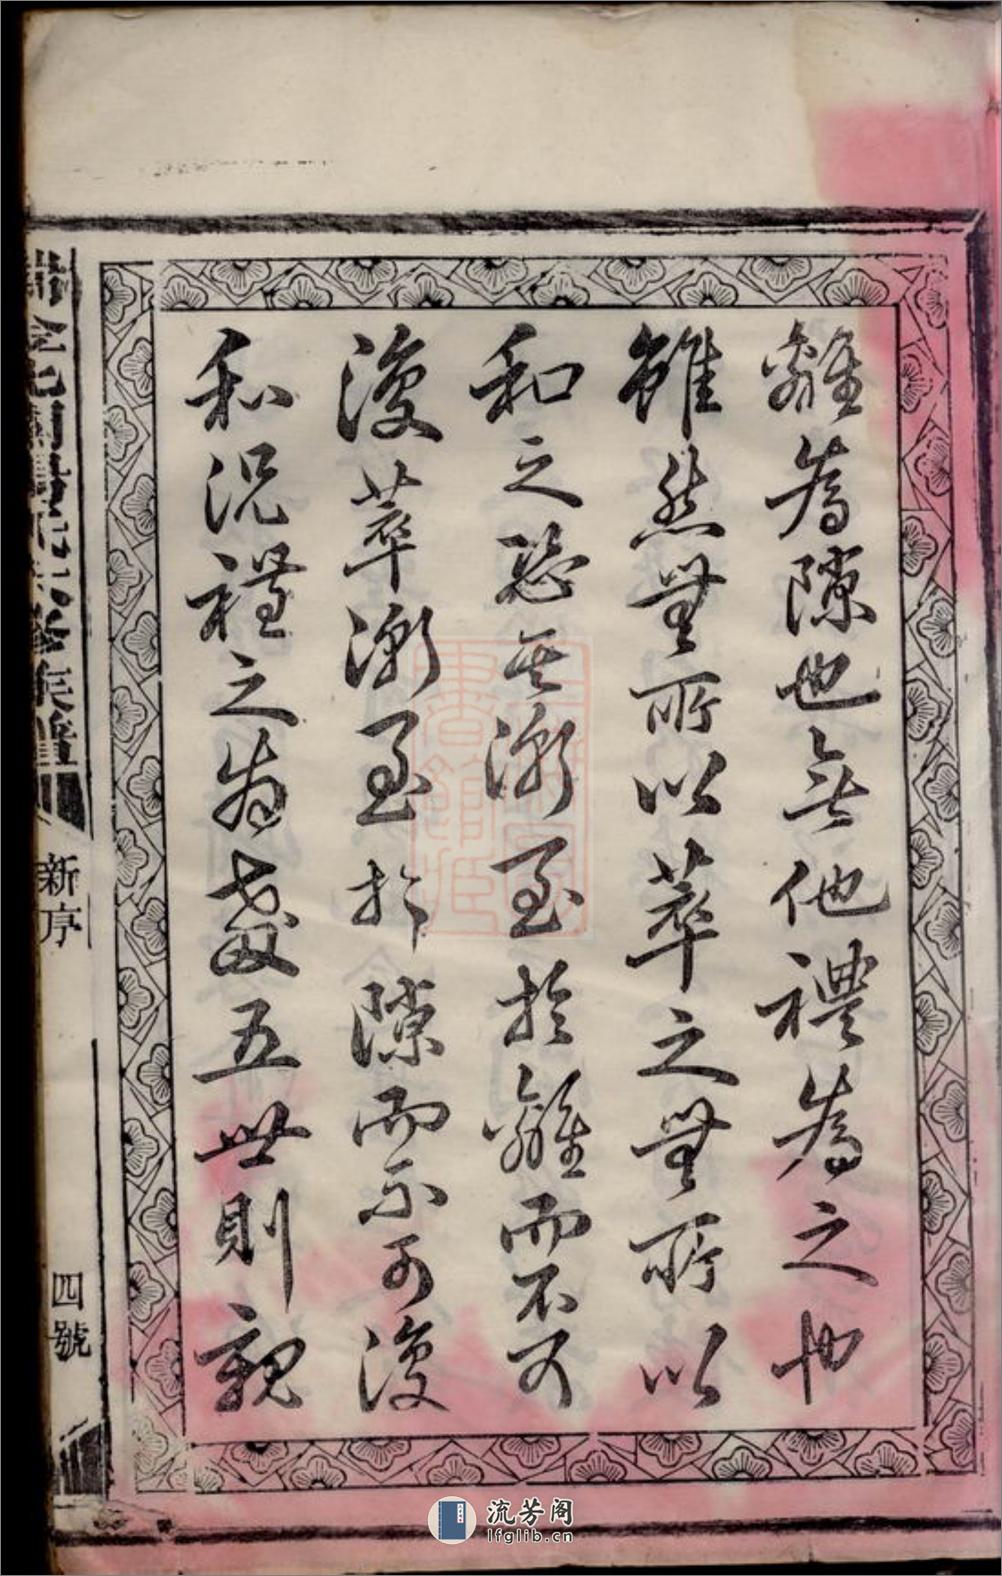 離為隙也無他禮為之也
雖然無所以萃之無所以
和之恐其漸至於離而不可
復萃漸至於隙而不可復
和況禮之為教五世則親
新序
四號
流芳阁
lfglib.cn